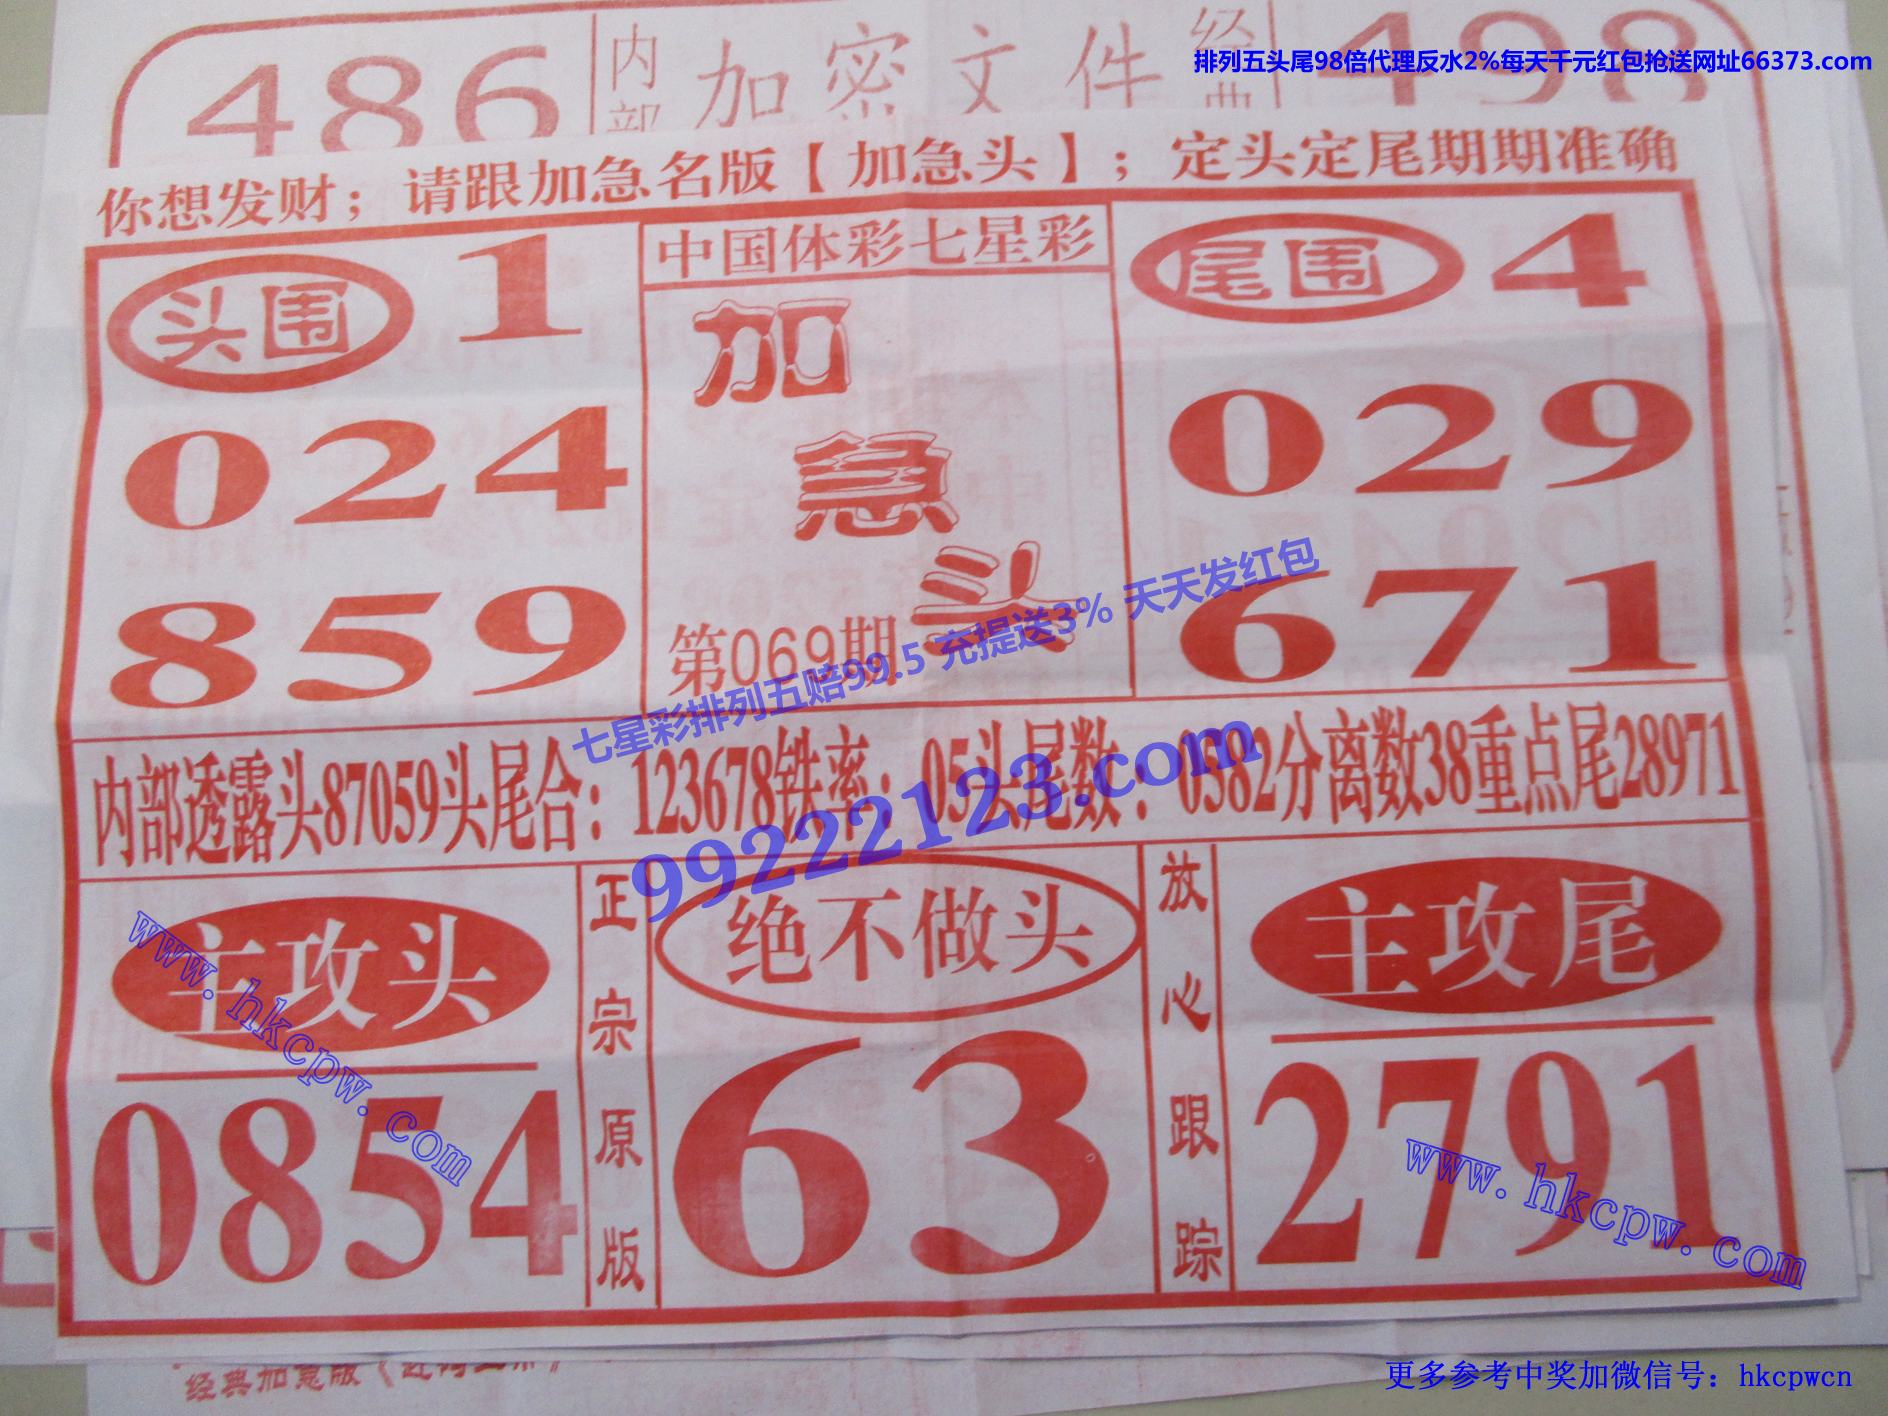 排列五头尾98倍代理反水2%每天千元红包抢送网址66373.com
486
内部
加密文件
经典
498
你想发财；请跟加急名版【加急头】；定头定尾期期准确
头围 1
024
859
中国体彩七星彩
加急头
第069期
尾围 4
029
671
七星彩排列五赔99.5 充提送3% 天天发红包
99222123.com
内部透露头87059头尾合：123678铁率：05头尾数：0582分离数38重点尾28971
主攻头
0854
正宗原版
绝不做头
63
放心跟踪
主攻尾
2791
www.hkcpw.com
www.hkcpw.com
经典加急版《
更多参考中奖加微信号：hkcpwcn